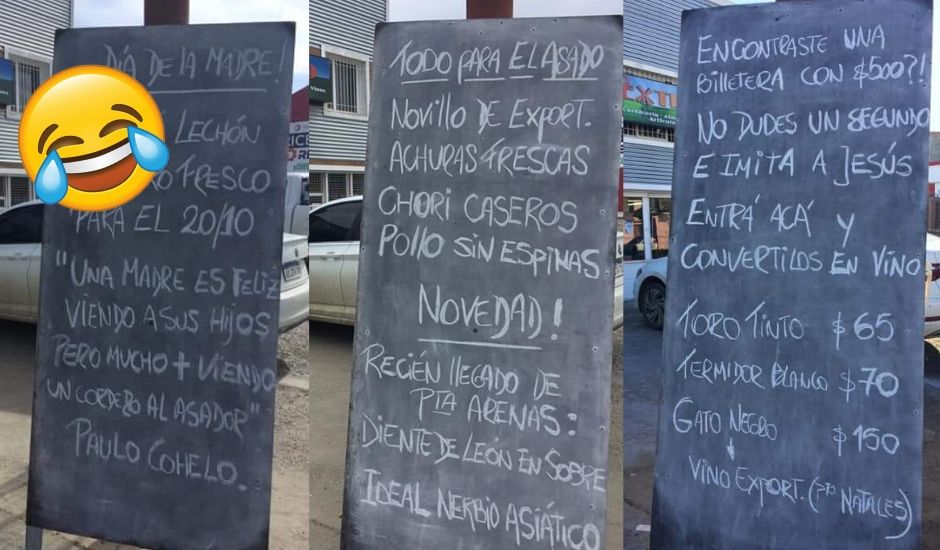 DÍA DE LA MADRE!
LECHÓN
FRESCO
PARA EL 20/10
"UNA MADRE ES FELIZ
VIENDO A SUS HIJOS
PERO MUCHO + VIENDO
UN CORDERO AL ASADOR"
PAULO COHELO.
TODO PARA EL ASADO
NOVILLO DE EXPORT.
ACHURAS FRESCAS
CHORI CASEROS
POLLO SIN ESPINAS
NOVEDAD!
RECIÉN LLEGADO DE
PTA ARENAS:
DIENTE DE LEÓN EN SOBRE
IDEAL NERBIO ASIÁTICO
ENCONTRASTE UNA
BILLETERA CON $500?!
NO DUDES UN SEGUNDO
E IMITA A JESÚS
ENTRÁ ACÁ Y
CONVERTILOS EN VINO
TORO TINTO $65
TERMIDOR BLANCO $70
GATO NEGRO $150
VINO EXPORT. (PTO NATALES)
Vinos
EXTR
Carnicería